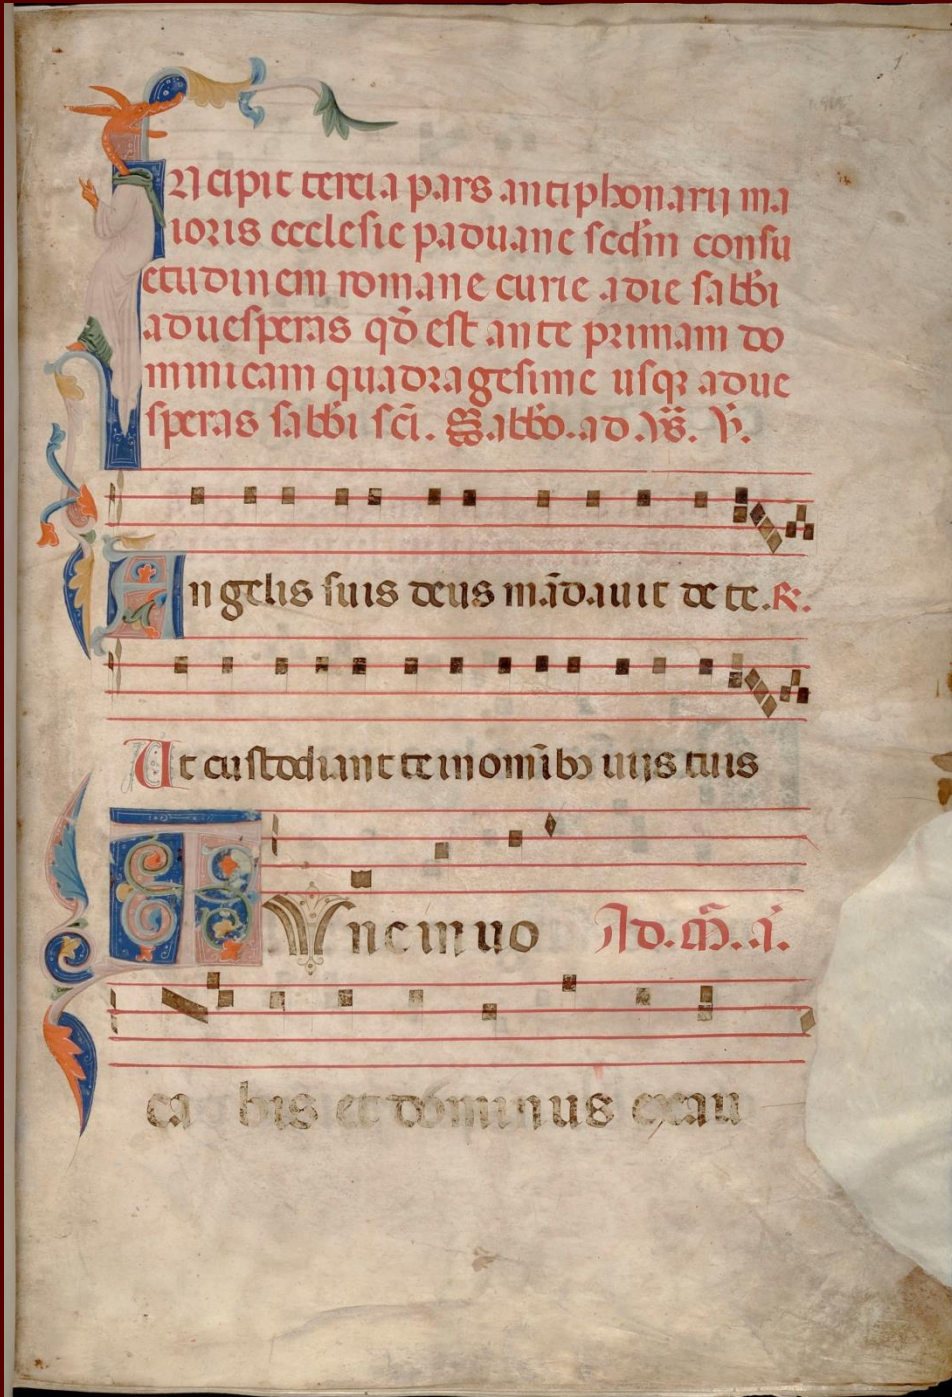 1
INcipit tercia pars antiphonarii ma
ioris ecclesie paduane scd̄m consu
etudinem romane curie a die sabb̄i
ad uesperas qd̄ est ante primam do
minicam quadragesime usqꝫ ad ue
speras sabb̄i sc̄i. Sabb̄o. ad. Vs̄. V̄.
An gelis suis deus mādauit de te. ℟.
Ut custodiant te in omībꝫ uiis tuis
TUnc inuo Ad. M̄. a̅.
ca bis et dominus exau